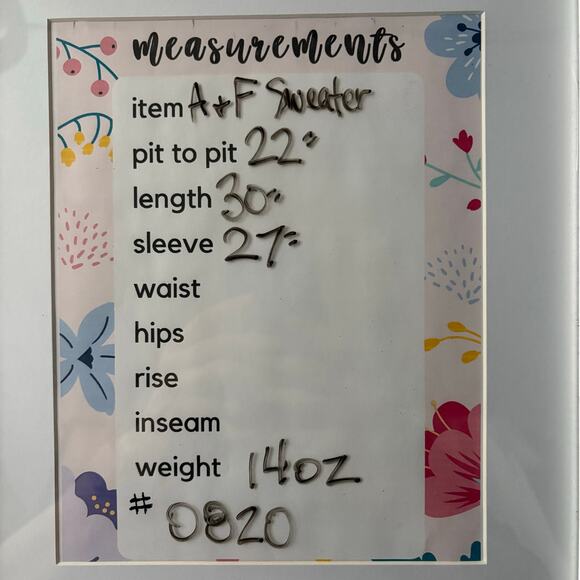 measurements
item A+F Sweater
pit to pit 22"
length 30"
sleeve 27"
waist
hips
rise
inseam
weight 14oz
# 0820